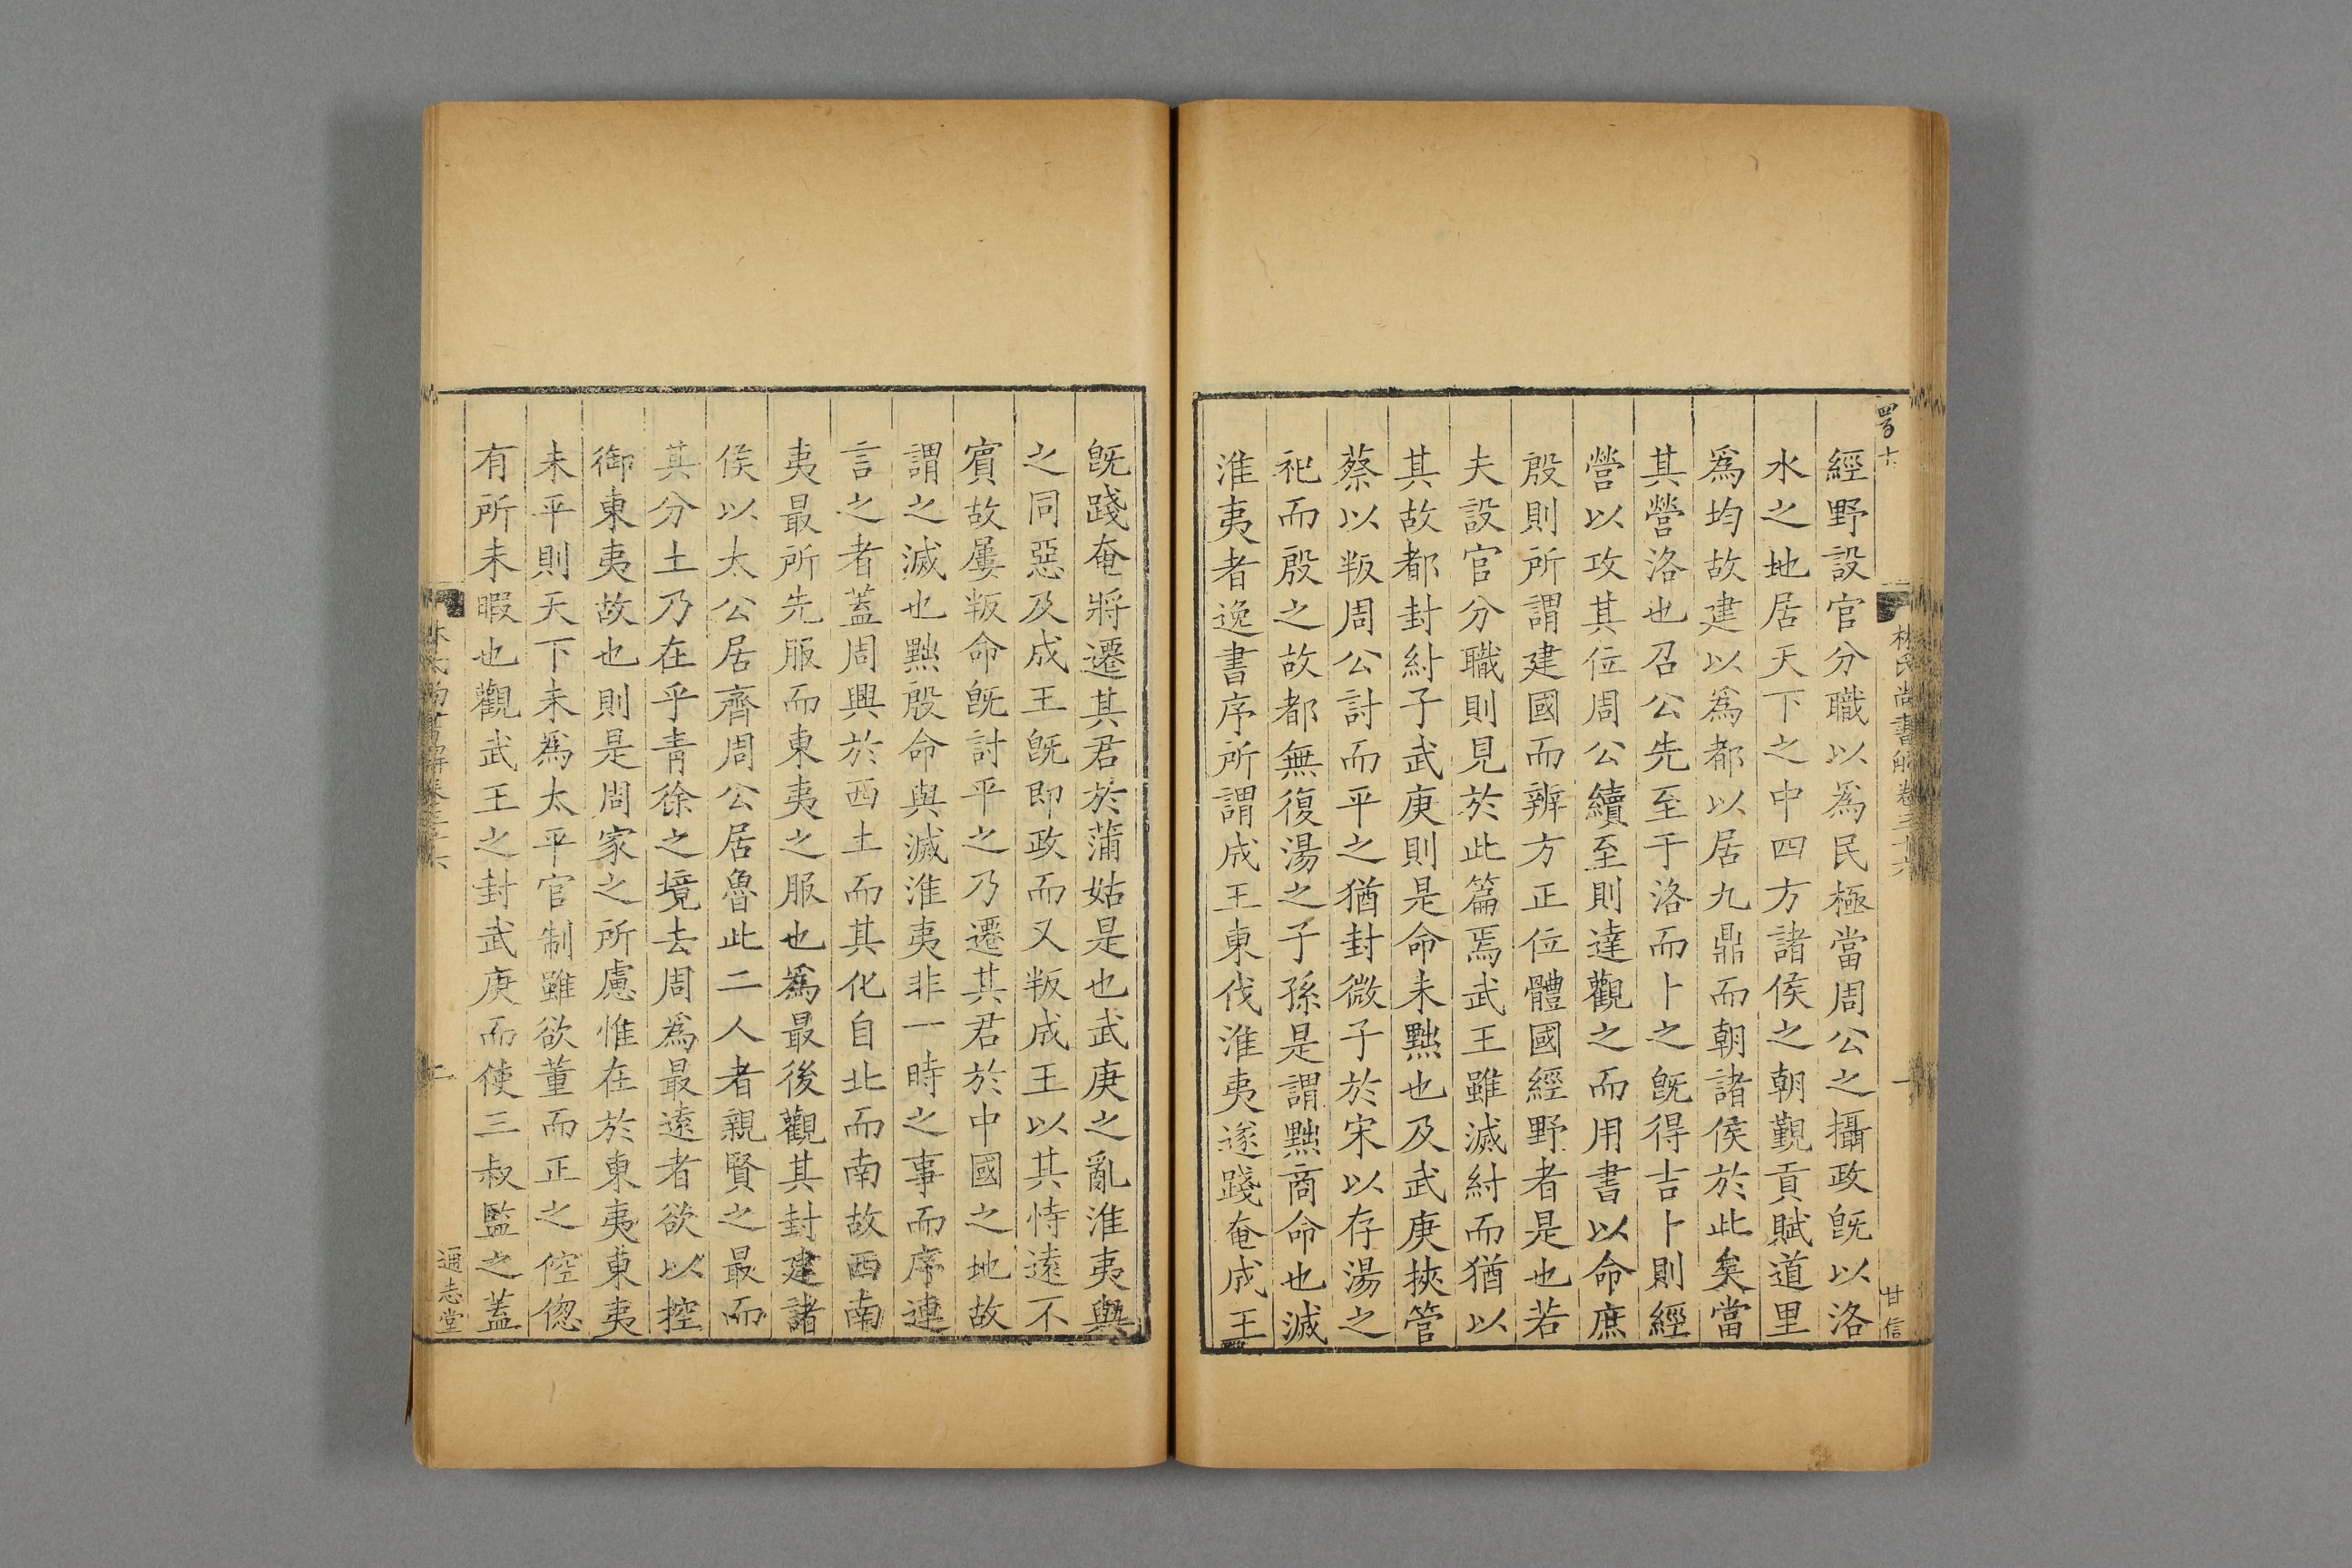 經野設官分職以爲民極當周公之攝政旣以洛
水之地居天下之中四方諸侯之朝覲貢賦道里
爲均故建以爲都以居九鼎而朝諸侯於此矣當
其營洛也召公先至于洛而卜之旣得吉卜則經
營以攻其位周公續至則達觀之而用書以命庶
殷則所謂建國而辨方正位體國經野者是也若
夫設官分職則見於此篇焉武王雖滅紂而猶以
其故都封紂子武庚則是命未黜也及武庚挾管
蔡以叛周公討而平之猶封微子於宋以存湯之
祀而殷之故都無復湯之子孫是謂黜商命也滅
淮夷者逸書序所謂成王東伐淮夷遂踐奄成王
林氏尚書解卷三十六
一
甘信
旣踐奄將遷其君於蒲姑是也武庚之亂淮夷與
之同惡及成王旣即政而又叛成王以其恃遠不
賓故屢叛命旣討平之乃遷其君於中國之地故
謂之滅也黜殷命與滅淮夷非一時之事而序連
言之者蓋周興於西土而其化自北而南故西南
夷最所先服而東夷之服也爲最後觀其封建諸
侯以太公居齊周公居魯此二人者親賢之最而
其分土乃在乎靑徐之境去周爲最遠者欲以控
御東夷故也則是周家之所慮惟在於東夷東夷
未平則天下未爲太平官制雖欲董而正之倥偬
有所未暇也觀武王之封武庚而使三叔監之蓋
二
通志堂